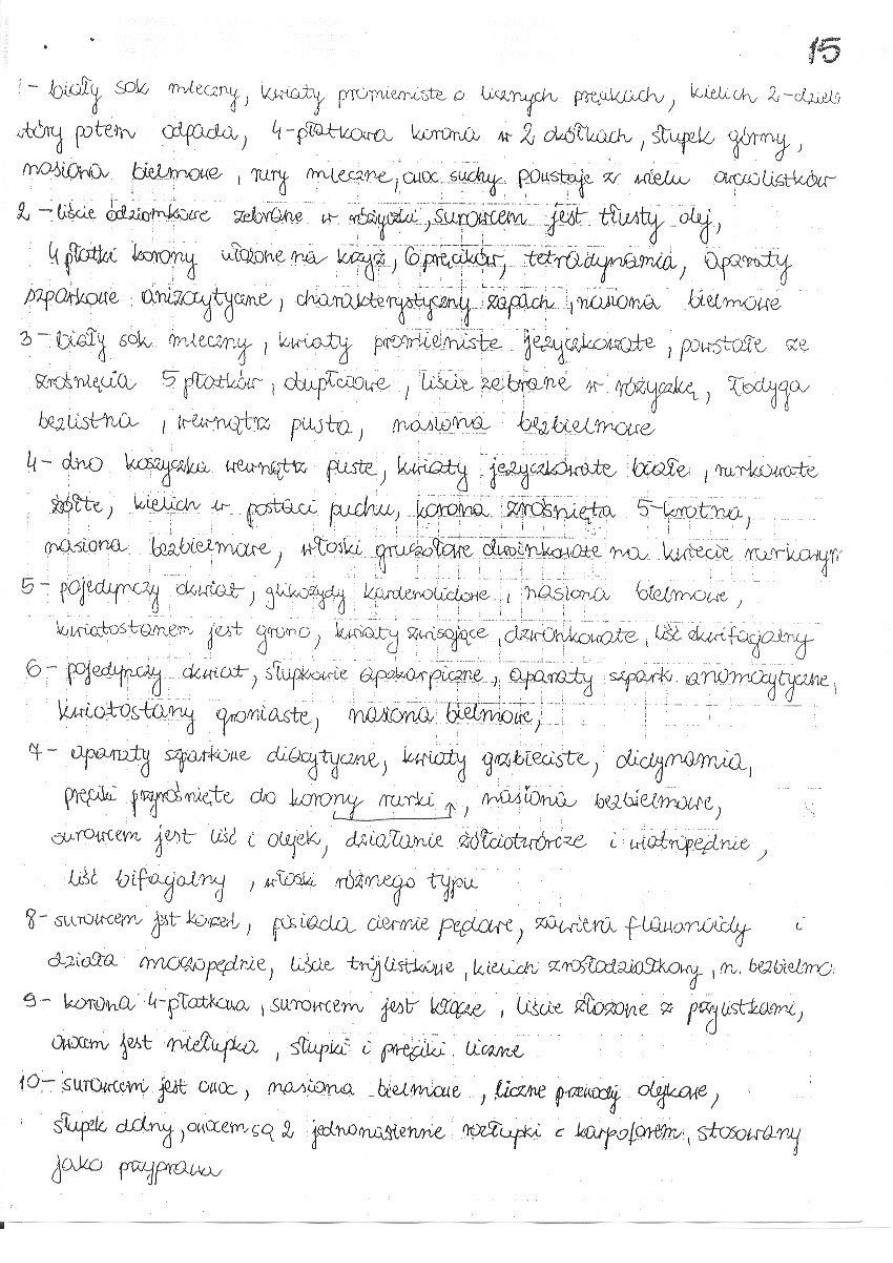 15
1- biały sok mleczny, kwiaty promieniste o licznych pręcikach, kielich 2-dziel
który potem odpada, 4-płatkowa korona w 2 okółkach, słupek górny,
nasiona bielmowe, rury mleczne, owoc suchy powstaje z wielu owocolistków
2 - liście odziomkowe zebrane w różyczki, surowcem jest tłusty olej,
4 płatki korony ułożone na krzyż, 6 pręcików, tetradynamia, aparaty
szparkowe anizocytyczne, charakterystyczny zapach, nasiona bielmowe
3- biały sok mleczny, kwiaty promieniste języczkowate, powstałe ze
zrośnięcia 5 płatków, obupłciowe, liście zebrane w różyczkę, łodyga
bezlistna, wewnątrz pusta, nasiona bezbielmowe
4- dno koszyczka wewnątrz puste, kwiaty języczkowate białe, rurkowate
żółte, kielich w postaci puchu, korona zrośnięta 5-krotna,
nasiona bezbielmowe, włoski gruczołowe dwoinkowate na kwiecie rurkowym
5- pojedynczy okwiat, glikozydy kardenolidowe, nasiona bielmowe,
kwiatostanem jest grono, kwiaty zwisające, dzwonkowate, liść ekwifacjalny
6- pojedynczy okwiat, słupkowie apokarpiczne, aparaty szpark. anomocytyczne,
kwiatostany groniaste, nasiona bielmowe,
7- aparaty szparkowe diacytyczne, kwiaty grzbieciste, didynamia,
pręciki przyrośnięte do korony rurki, nasiona bezbielmowe,
surowcem jest liść i olejek, działanie żółciotwórcze i wiatropędnie,
liść bifacjalny, włoski różnego typu
8- surowcem jst korzeń, posiada ciernie pędowe, zawiera flawonoidy i
działa moczopędnie, liście trójlistkowe, kielich zrosłodziałkowy, n. bezbielmo.
9- korona 4-płatkowa, surowcem jest kłącze, liście złożone z przylistkami,
owocem jest niełupka, słupki i pręciki liczne
10- surowcem jest owoc, nasiona bielmowe, liczne przewody olejkowe,
słupek dolny, owocem są 2 jednonasienne rozłupki z karpoforem, stosowany
jako przyprawa